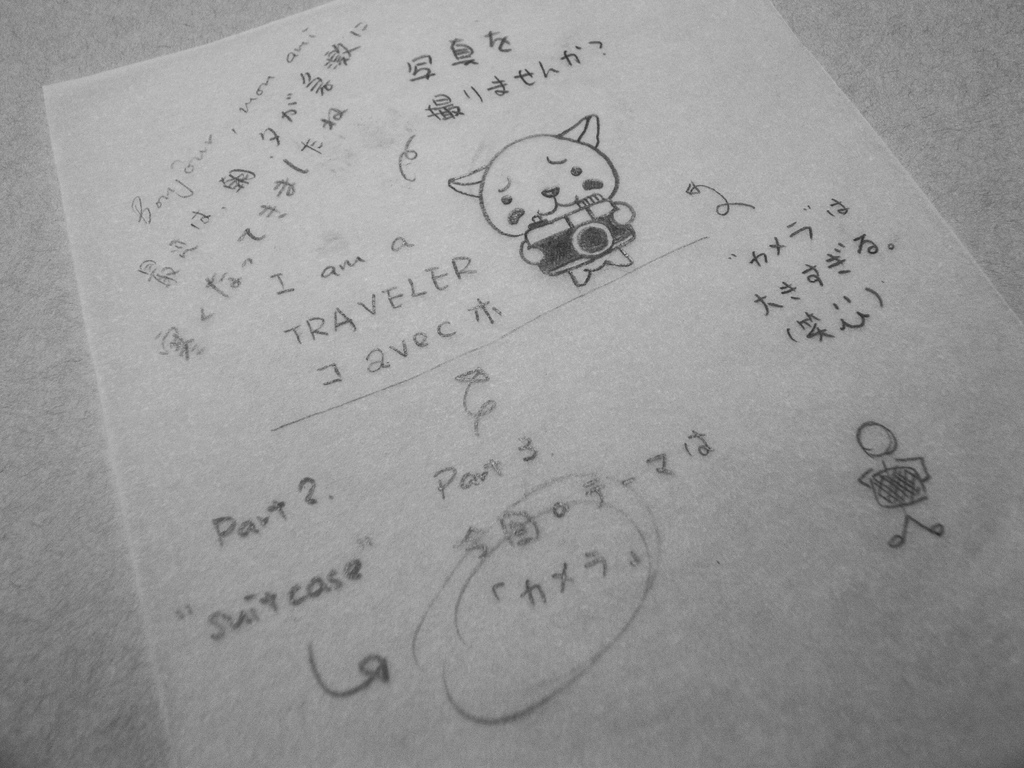 Bonjour, mon ami
最近は、朝・夕が多数に
寒くなってきましたね
写真を
撮りませんか?
I am a
TRAVELER
コ avec ホ
"カメラ"は
大きすぎる。
(笑)
Part 2.
"suitcase"
Part 3.
今回のテーマは
「カメラ」